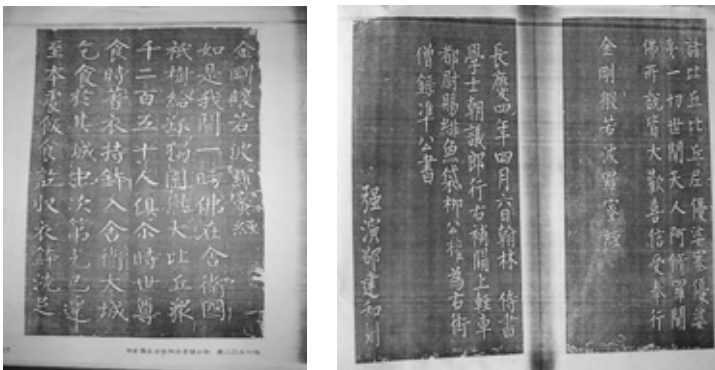 金剛般若波羅蜜經
如是我聞一時佛在舍衛國
祇樹給孤獨園與大比丘衆
千二百五十人俱尒時世尊
食時著衣持鉢入舍衛大城
乞食於其城中次第乞已還
至本處飯食訖收衣鉢洗足
諸比丘比丘尼優婆塞優婆
夷一切世間天人阿修羅聞
佛所說皆大歡喜信受奉行
金剛般若波羅蜜經
長慶四年四月六日翰林 侍書
學士朝議郎行右補闕上輕車
都尉賜緋魚袋柳公權為右街
僧錄準公書
强演邵建和刻